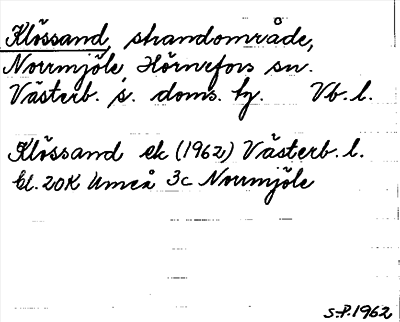 Klössand, strandområde,
Norrmjöle, Hörnefors sn.
Västerb. s. doms. hg. Vb. l.
Klössand ek (1962) Västerb. l.
bl. 20K Umeå 3c Norrmjöle
S-P. 1962